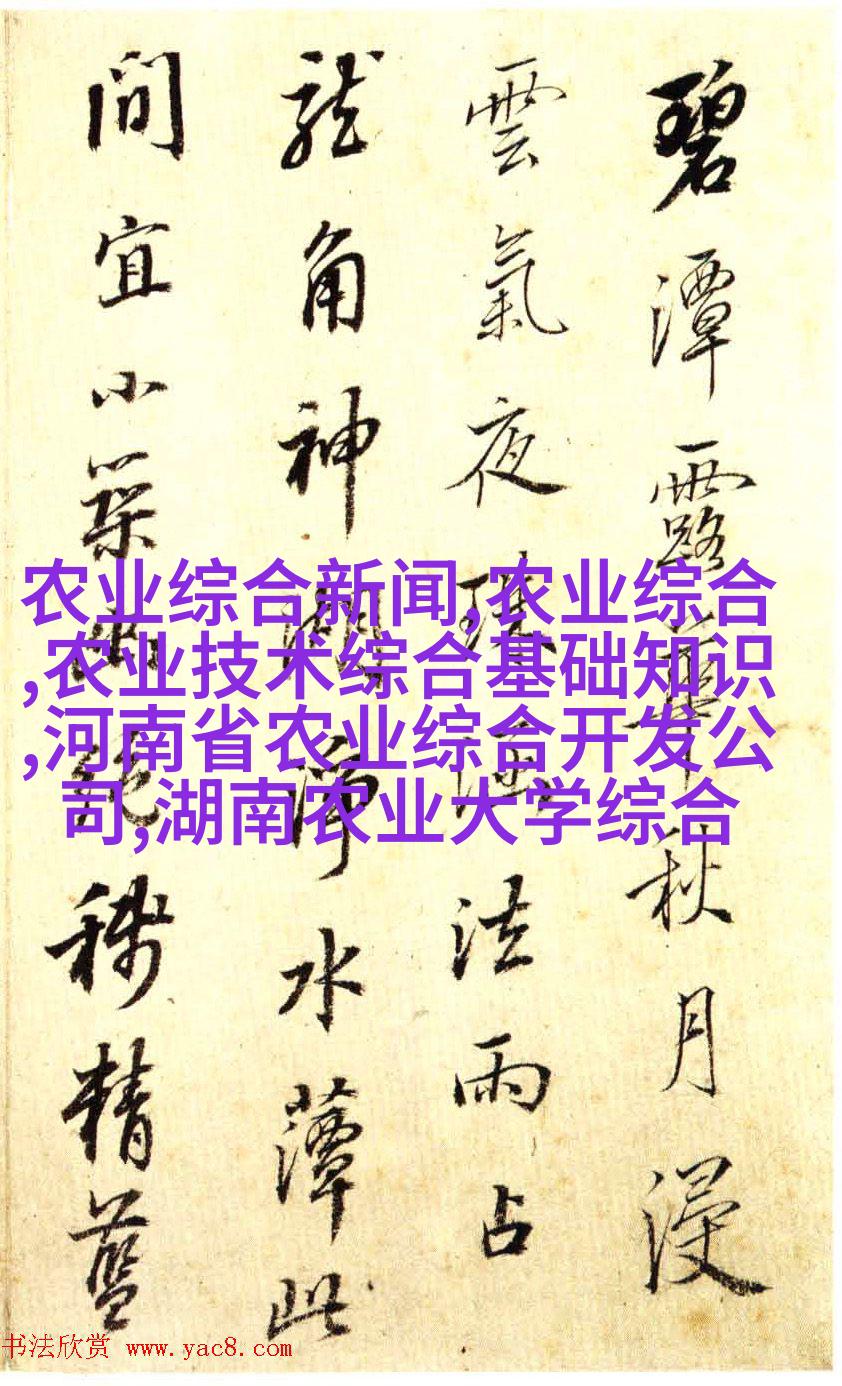 碧潭露華秋月浸
雲氣夜法雨占
龍角神湖淨水此
間宜小築幽絶稱精藍
农业综合新闻,农业综合
,农业技术综合基础知识
,河南省农业综合开发公
司,湖南农业大学综合
书法欣赏 www.yac8.com